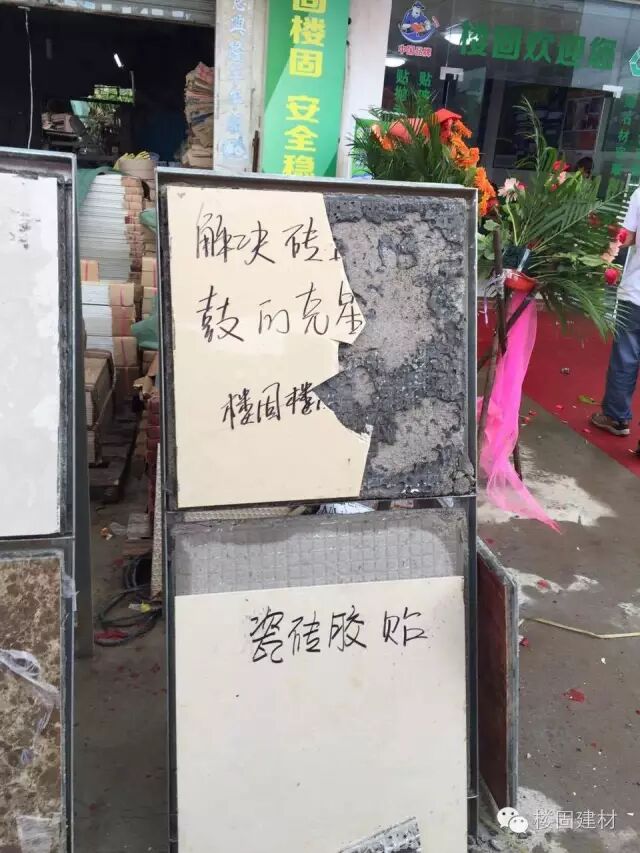 固楼固 安全稳
中国品牌
楼固欢迎您
解决砖
鼓的克星
楼固楼
瓷砖胶贴
楼固建材